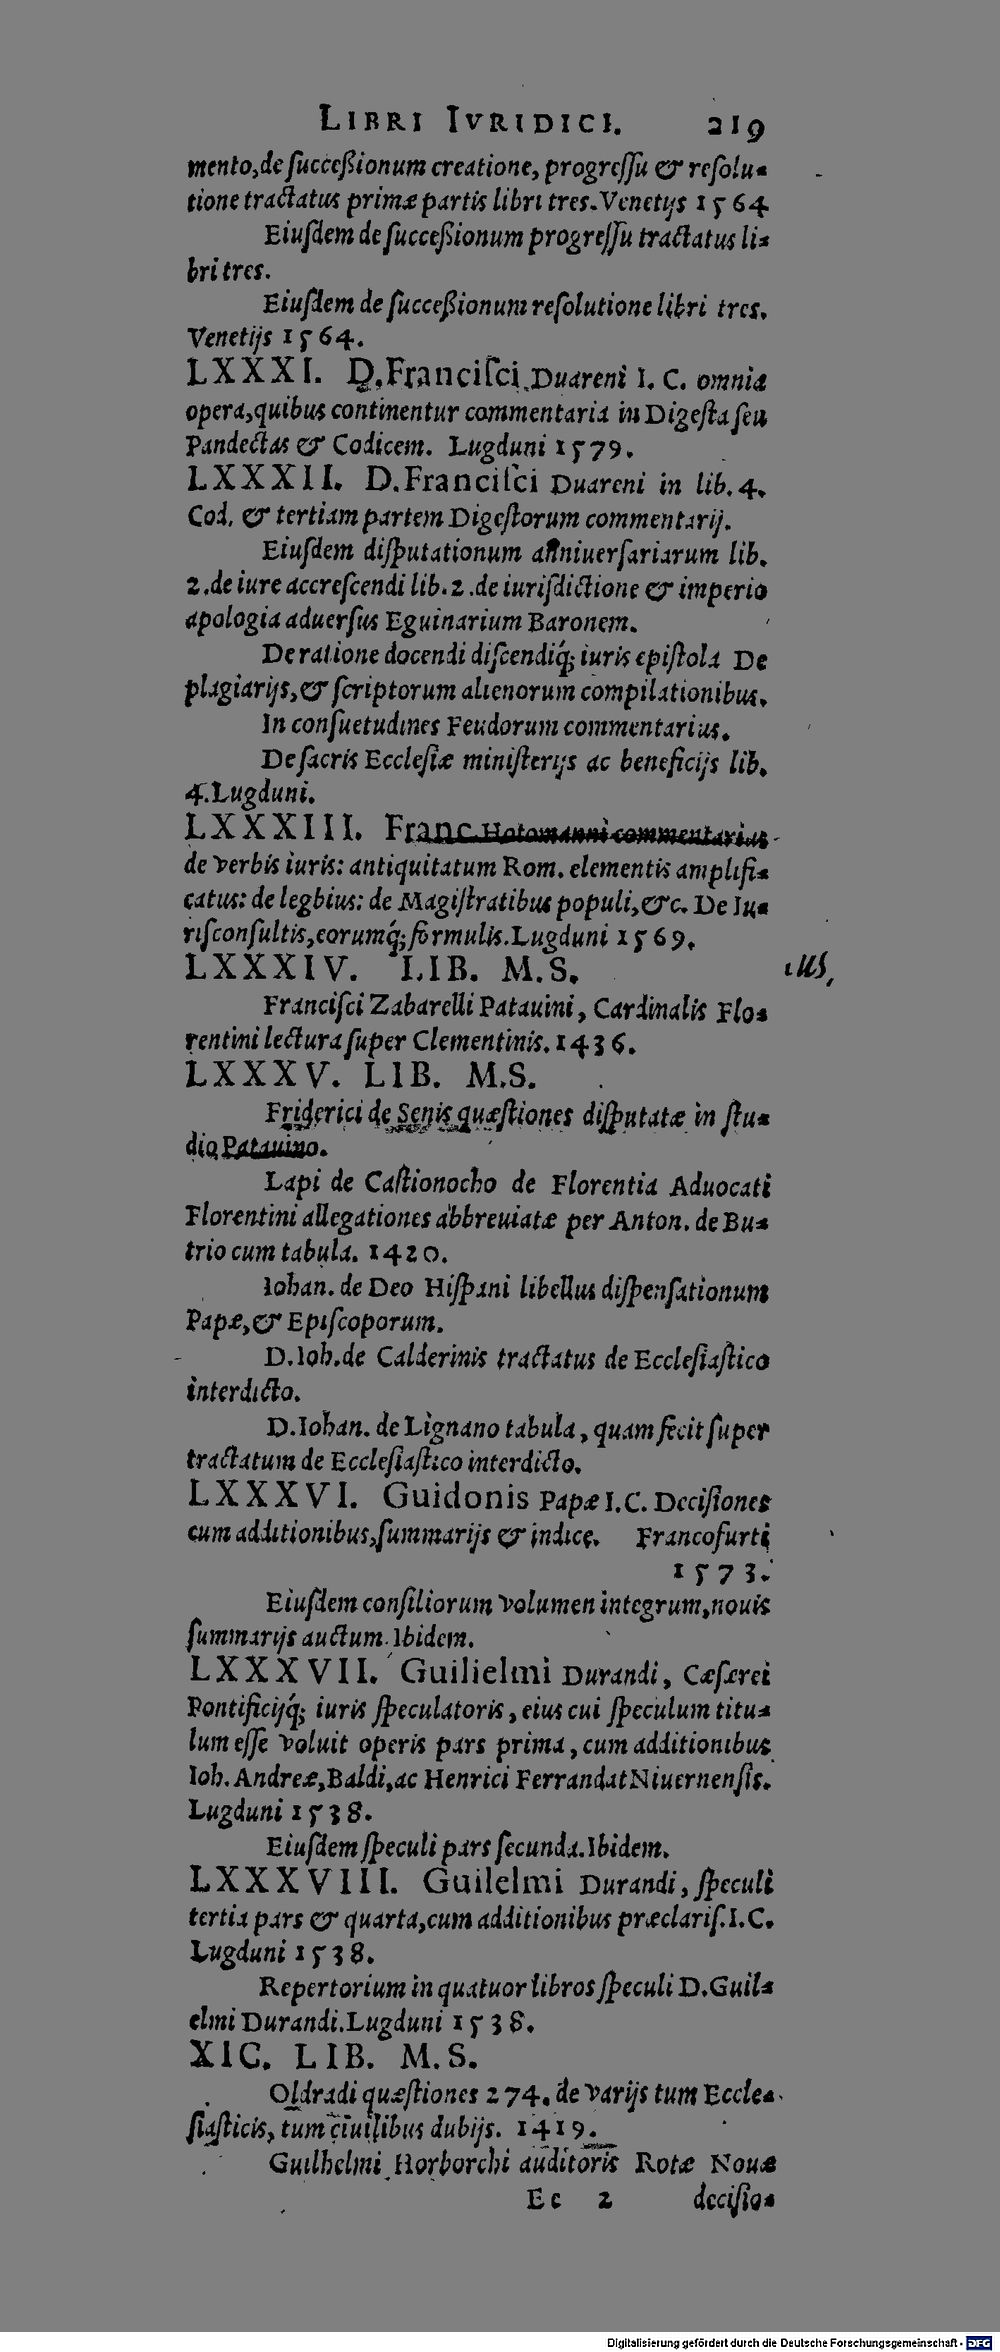 LIBRI IVRIDICI. 219
mento, de succeßionum creatione, progressu & resolu-
tione tractatus primæ partis libri tres. Venetijs 1564
Eiusdem de succeßionum progressu tractatus li-
bri tres.
Eiusdem de succeßionum resolutione libri tres.
Venetijs 1564.
LXXXI. D. Francisci Duareni I. C. omnia
opera, quibus continentur commentaria in Digesta seu
Pandectas & Codicem. Lugduni 1579.
LXXXII. D. Francisci Duareni in lib. 4.
Cod. & tertiam partem Digestorum commentarij.
Eiusdem disputationum anniuersariarum lib.
2. de iure accrescendi lib. 2. de iurisdictione & imperio
apologia aduersus Eguinarium Baronem.
De ratione docendi discendiq́; iuris epistola De
plagiarijs, & scriptorum alienorum compilationibus.
In consuetudines Feudorum commentarius.
De sacris Ecclesiæ ministerijs ac beneficijs lib.
4. Lugduni.
LXXXIII. Franc. Hotomanni commentarius
de verbis iuris: antiquitatum Rom. elementis amplifi-
catus: de legbius: de Magistratibus populi, &c. De Iu-
risconsultis, eorumq́; formulis. Lugduni 1569.
LXXXIV. LIB. M.S.
Francisci Zabarelli Patauini, Cardinalis Flo-
rentini lectura super Clementinis. 1436.
LXXXV. LIB. M.S.
Friderici de Senis quæstiones disputatæ in stu-
dio Patauino.
Lapi de Castionocho de Florentia Aduocati
Florentini allegationes abbreuiatæ per Anton. de Bu-
trio cum tabula. 1420.
Iohan. de Deo Hispani libellus dispensationum
Papæ, & Episcoporum.
D. Ioh. de Calderinis tractatus de Ecclesiastico
interdicto.
D. Iohan. de Lignano tabula, quam fecit super
tractatum de Ecclesiastico interdicto.
LXXXVI. Guidonis Papæ I.C. Decisiones
cum additionibus, summarijs & indice. Francofurti
1573.
Eiusdem consiliorum volumen integrum, nouis
summarijs auctum. Ibidem.
LXXXVII. Guilielmi Durandi, Cæsarei
Pontificijq́; iuris speculatoris, eius cui speculum titu-
lum esse voluit operis pars prima, cum additionibus
Ioh. Andreæ, Baldi, ac Henrici Ferrandat Niuernensis.
Lugduni 1538.
Eiusdem speculi pars secunda. Ibidem.
LXXXVIII. Guilelmi Durandi, speculi
tertia pars & quarta, cum additionibus præclaris. I.C.
Lugduni 1538.
Repertorium in quatuor libros speculi D. Guil-
elmi Durandi. Lugduni 1538.
XIC. LIB. M.S.
Oldradi quæstiones 274. de varijs tum Eccle-
siasticis, tum ciuilibus dubijs. 1419.
Guilhelmi Horborchi auditoris Rotæ Nouæ
Ee 2 decisio-
Digitalisierung gefördert durch die Deutsche Forschungsgemeinschaft - DFG